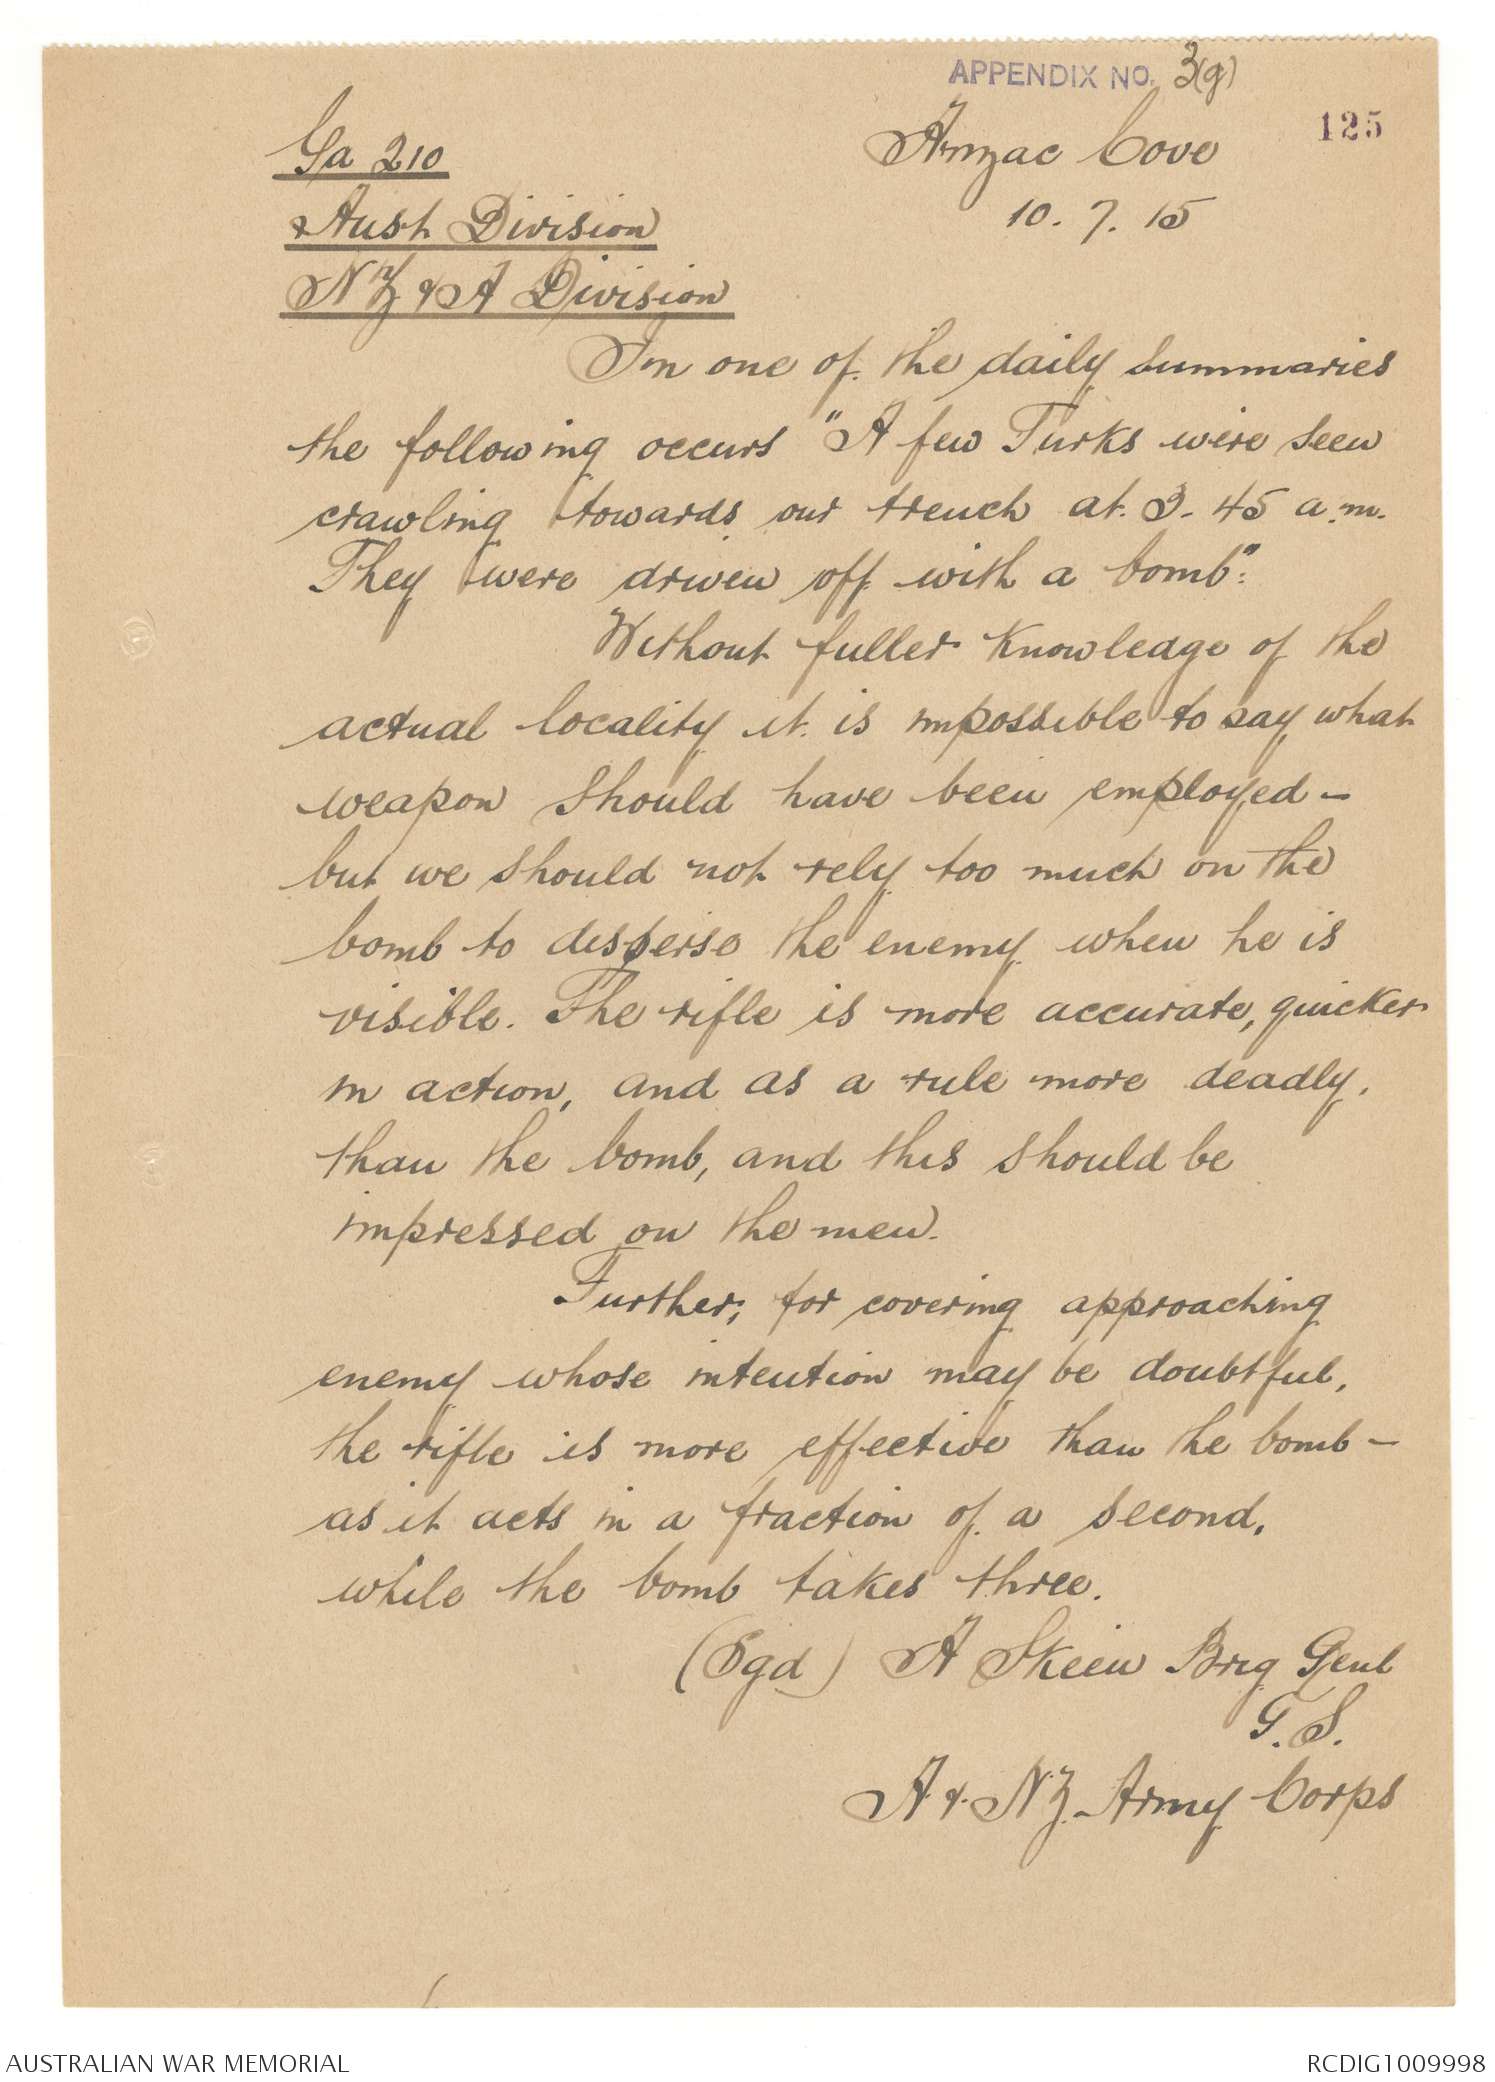 APPENDIX NO. 3(g)
125
Ga 210
Anzac Cove
Aust Division
10.7.15
NZ & A Division
In one of the daily summaries
the following occurs "A few Turks were seen
crawling towards our trench at 3.45 a.m.
They were driven off with a bomb".
Without fuller knowledge of the
actual locality it is impossible to say what
weapon should have been employed -
but we should not rely too much on the
bomb to disperse the enemy when he is
visible. The rifle is more accurate, quicker
in action, and as a rule more deadly,
than the bomb, and this should be
impressed on the men.
Further, for covering approaching
enemy whose intention may be doubtful,
the rifle is more effective than the bomb -
as it acts in a fraction of a second,
while the bomb takes three.
(Sgd) A Skeen Brig Genl
G.S.
A & NZ Army Corps
AUSTRALIAN WAR MEMORIAL
RCDIG1009998